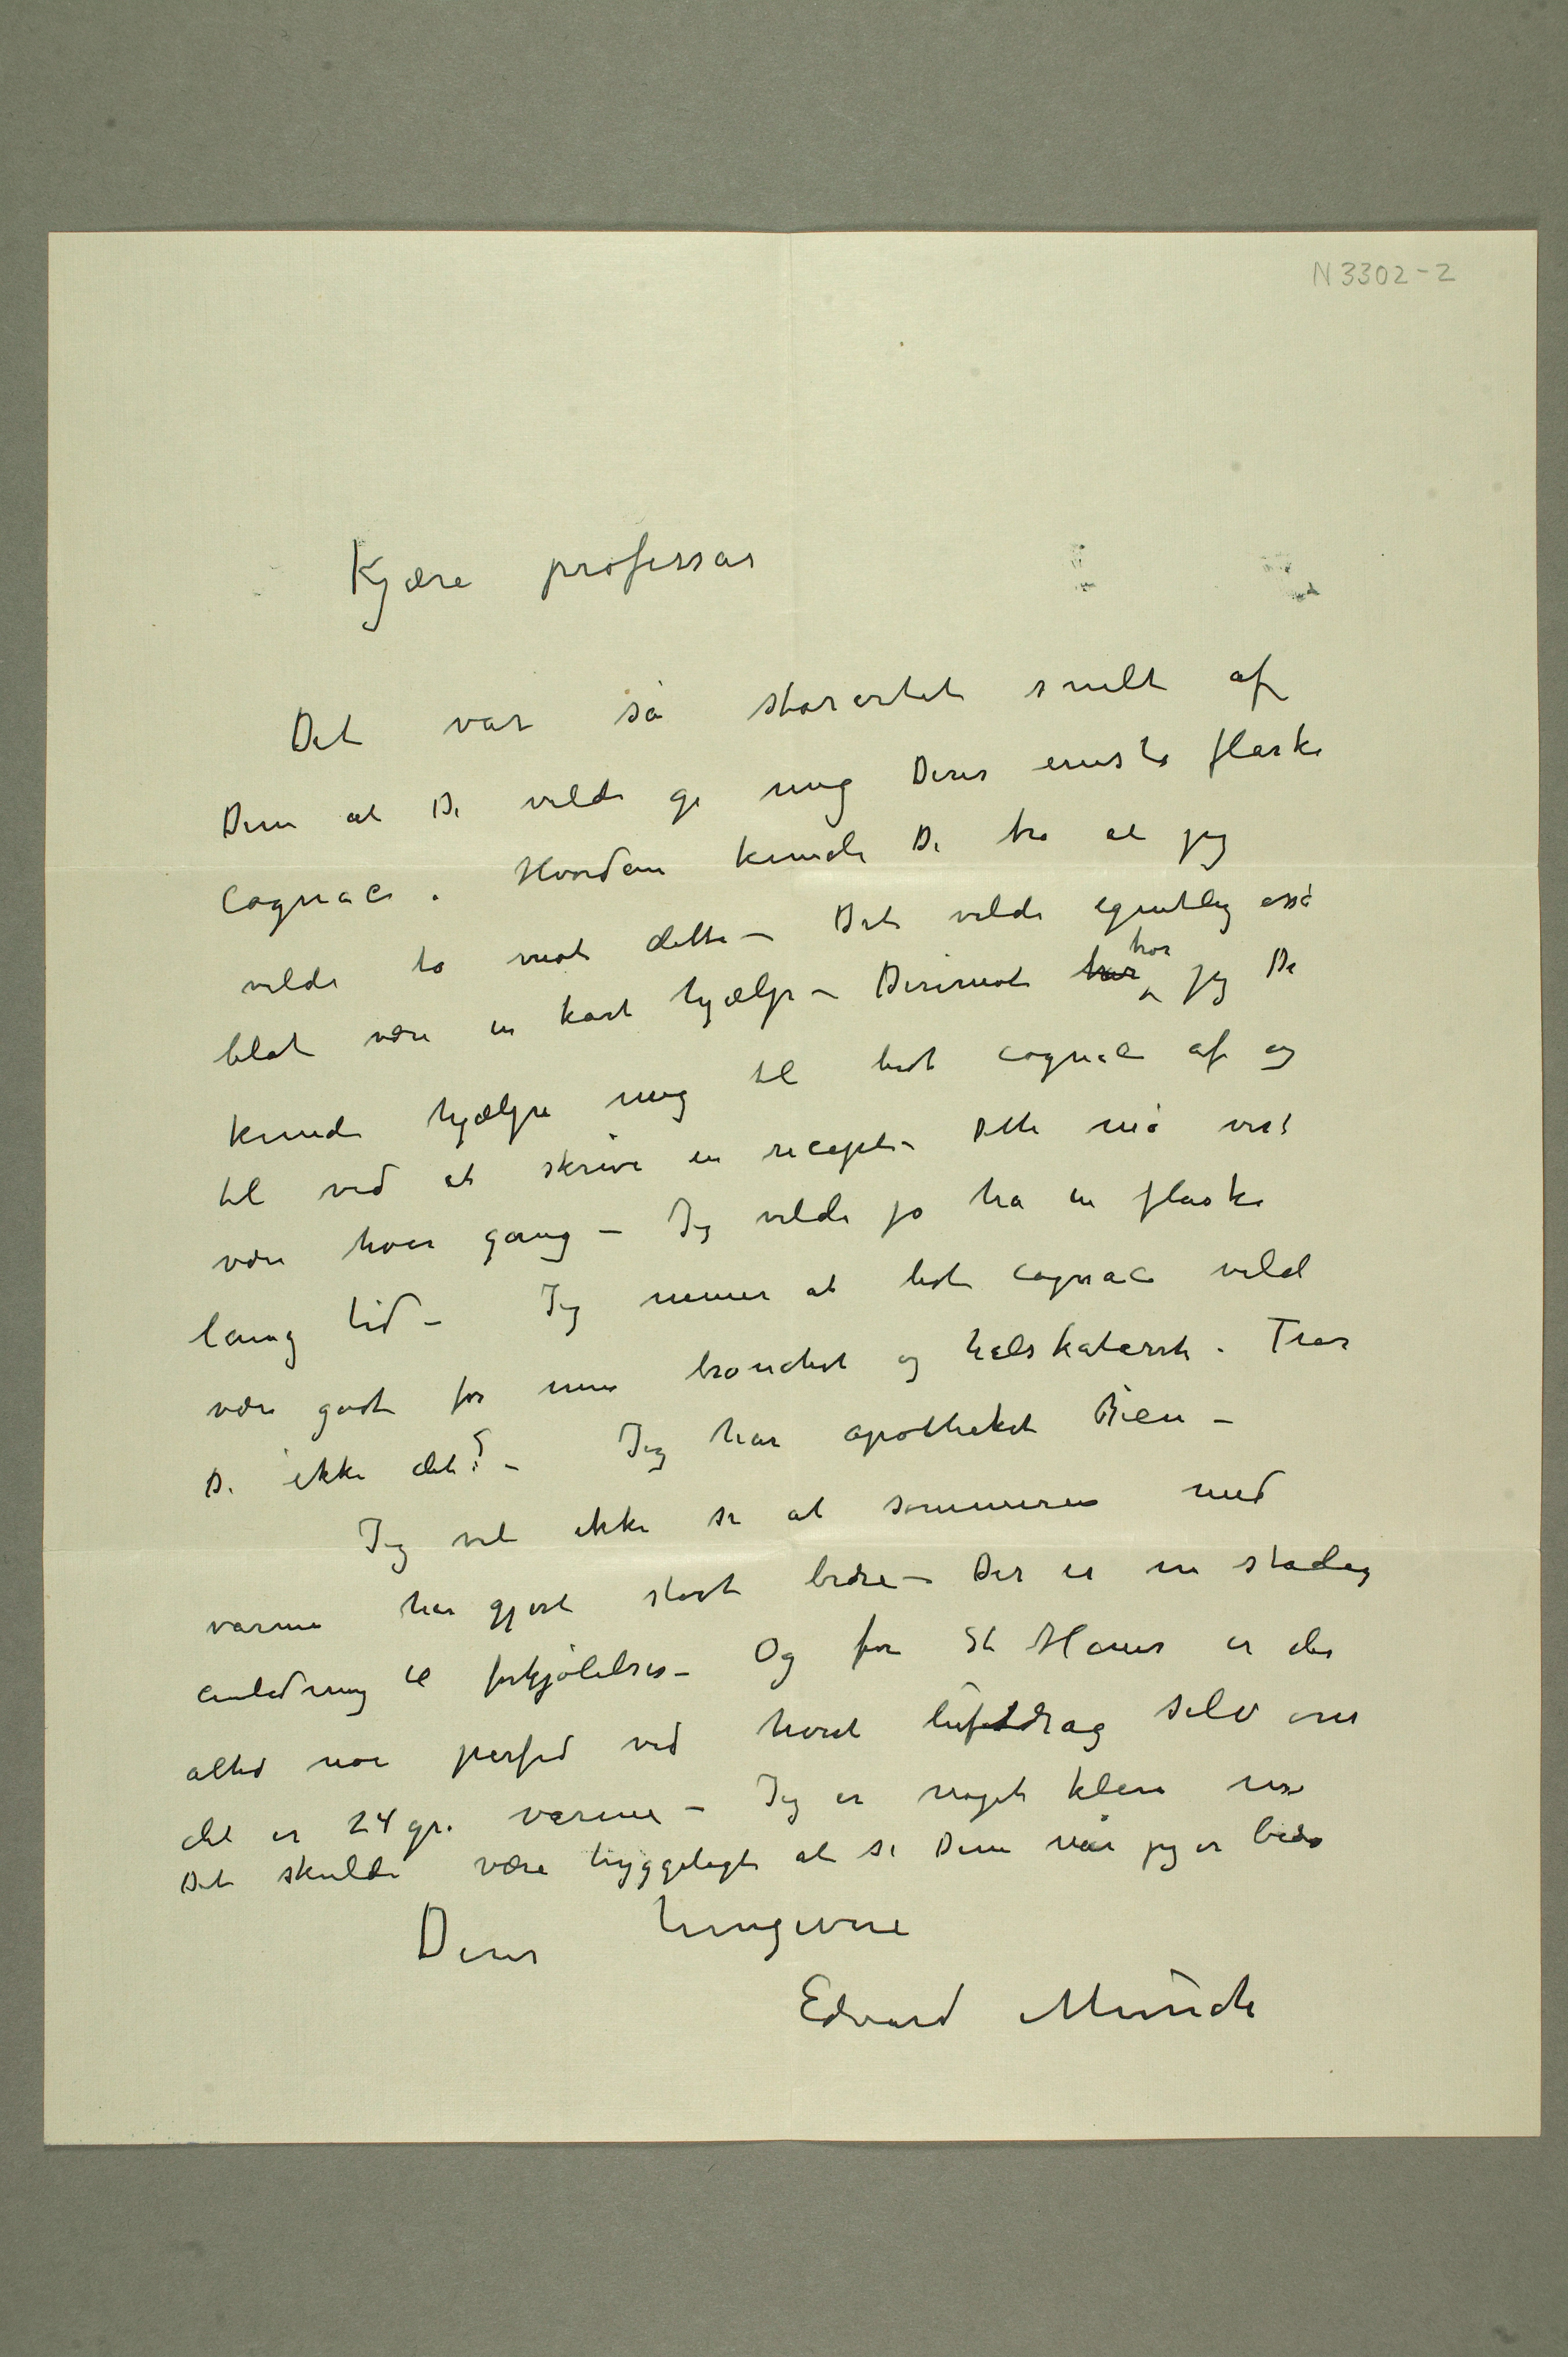 N 3302-2
Kjære professor
Det var så storartet snilt af
Dem at De vilde gi mig Deres eneste flaske
cognac. Hvordan kunde De tro at jeg
vilde ta mot dette – Det vilde egentlig osså
blot være en kort hjælp – Derimot tror jeg De
kunde hjælpe mig til lidt cognac af og
til ved at skrive en recept – Dette må vist
være hver gang – Jeg vilde jo ha en flaske
lang tid – Jeg mener at lidt cognac vild
være godt for min bronchit og halskatarrh. Tror
De ikke det? – Jeg har apotheket Bien –
Jeg vil ikke si at sommeren med
varme har gjort stort bedre – Der er en stadig
anledning til forkjølelse – Og før St Hans er der
altid noe perfid ved hvert luftdrag selv om
det er 24 gr. varme – Jeg er noget klein nu
Det skulde være hyggeligt at se Dem når jeg er bedre
Deres hengivne
Edvard Munch